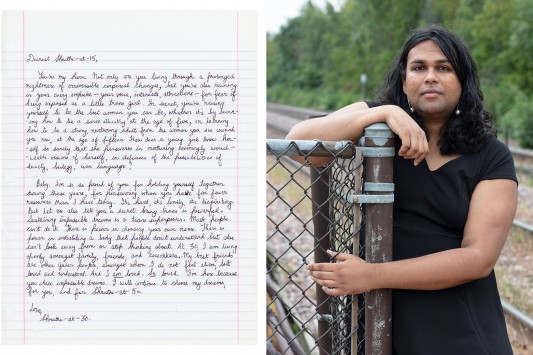 Dearest Shruthi-at-15,
You're my hero. Not only are you living through a prolonged
nightmare of irreversible corporeal changes, but you're also reining
in your every impulse – your voice, interests, attractions – for fear of
being exposed as a little trans girl. In secret, you're raising
yourself to be the best woman you can be, whether it's by
how to be a at the age of five, or
how to be a strong, nurturing from the women you see around
you now, at the age of fifteen. How does a young girl know
self so surely that she perseveres in nurturing seemingly
version of herself, in defiance of the possibilities of
society, biology, and language?
Baby, I'm so so proud of you for holding yourself together
during these years, for persevering when you have far fewer
resources than I have today. It's hard, it's lonely, it's
But let me also tell you a secret: being trans is powerful.
impossible dreams is a trans superpower. Most people
can't do it. There is power in choosing your own name. There is
power in inhabiting a body that people don't understand but also
can't look away from or stop thinking about. At 30, I am living
among family, friends and My best friends
are other trans people, amongst whom I do not feel alien, but
loved and understood. And I am loved. So loved. I'm here because
you chose impossible dreams. I will continue to chase my dreams,
for you, and for Shruthi-at-50.
Love,
Shruthi-at-30.